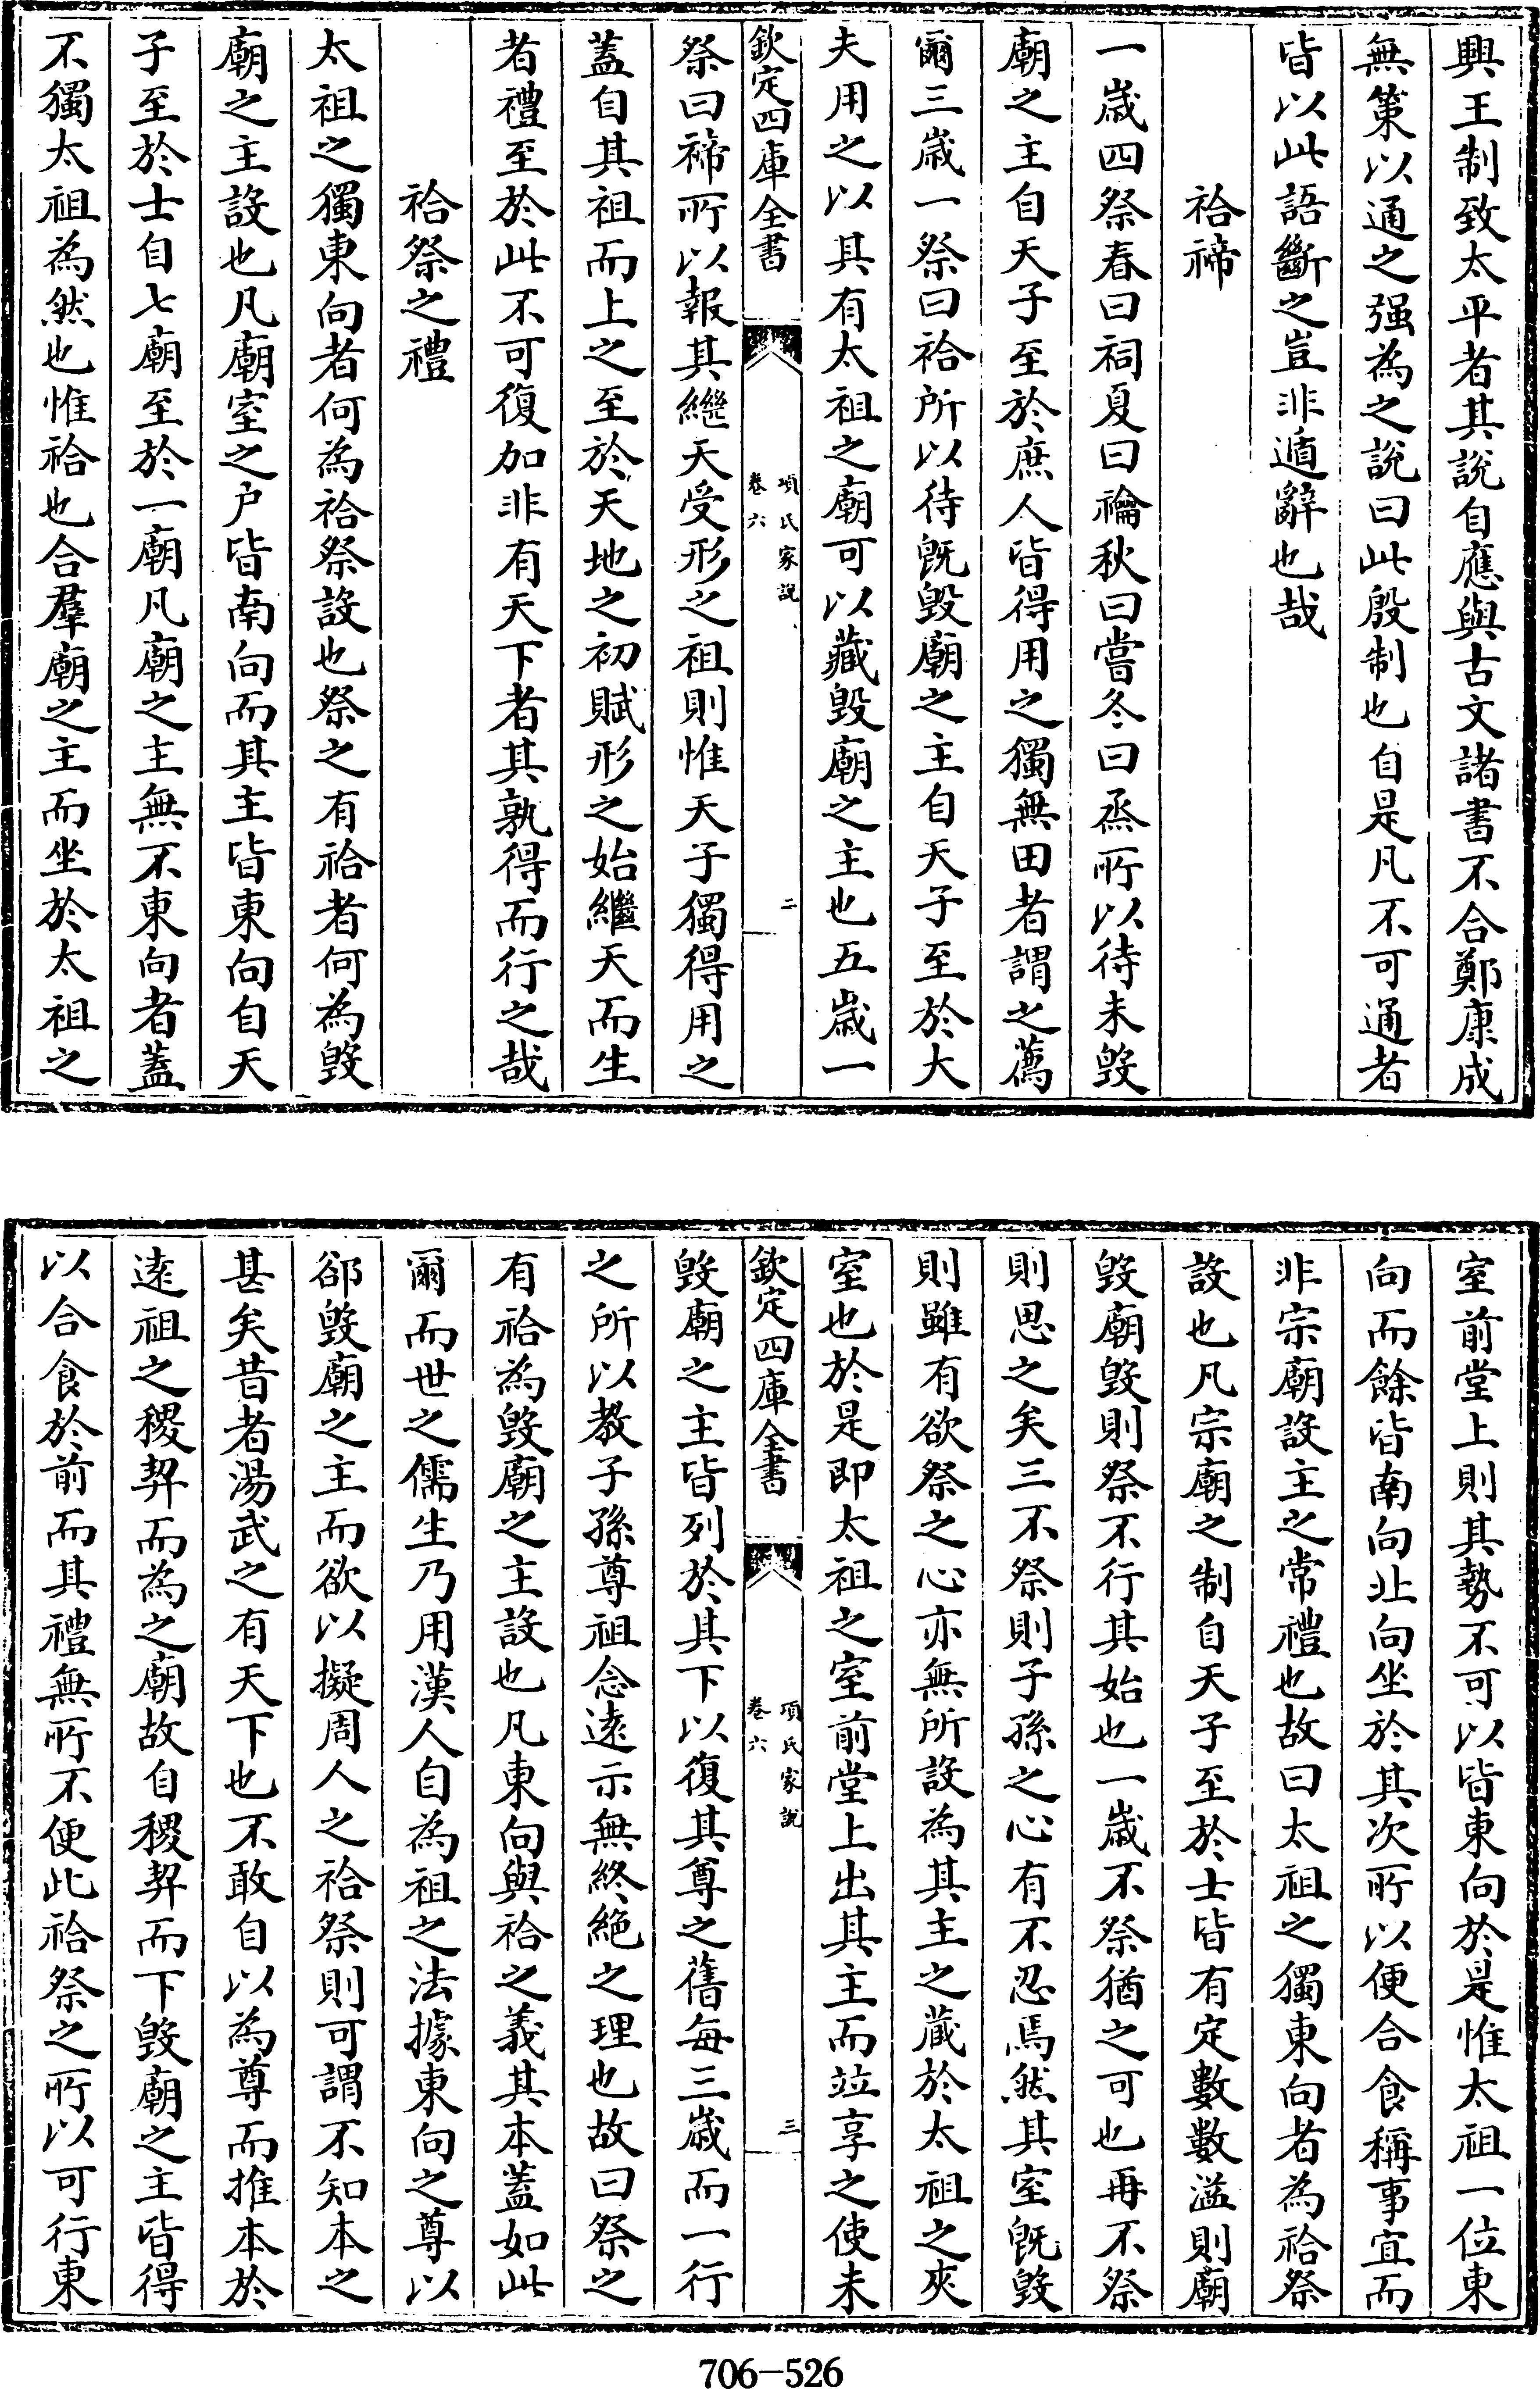 興王制致太平者其說自應與古文諸書不合鄭康成
無策以通之强為之說曰此殷制也自是凡不可通者
皆以此語斷之豈非遁辭也哉
祫禘
一歲四祭春曰祠夏曰禴秋曰嘗冬曰烝所以待未毀
廟之主自天子至於庶人皆得用之獨無田者謂之薦
爾三歲一祭曰祫所以待既毀廟之主自天子至於大
夫用之以其有太祖之廟可以藏毀廟之主也五歲一
欽定四庫全書
項氏家說
卷六
二
祭曰禘所以報其繼天受形之祖則惟天子獨得用之
蓋自其祖而上之至於天地之初賦形之始繼天而生
者禮至於此不可復加非有天下者其孰得而行之哉
祫祭之禮
太祖之獨東向者何為祫祭設也祭之有祫者何為毀
廟之主設也凡廟室之户皆南向而其主皆東向自天
子至於士自七廟至於一廟凡廟之主無不東向者蓋
不獨太祖為然也惟祫也合羣廟之主而坐於太祖之
室前堂上則其勢不可以皆東向於是惟太祖一位東
向而餘皆南向北向坐於其次所以便合食稱事宜而
非宗廟設主之常禮也故曰太祖之獨東向者為祫祭
設也凡宗廟之制自天子至於士皆有定數數溢則廟
毀廟毀則祭不行其始也一歲不祭猶之可也再不祭
則思之矣三不祭則子孫之心有不忍焉然其室既毀
則雖有欲祭之心亦無所設為其主之藏於太祖之夾
室也於是即太祖之室前堂上出其主而竝享之使未
欽定四庫全書
項氏家說
卷六
三
毀廟之主皆列於其下以復其尊之舊每三歲而一行
之所以教子孫尊祖念遠示無終絶之理也故曰祭之
有祫為毀廟之主設也凡東向與祫之義其本蓋如此
爾而世之儒生乃用漢人自為祖之法據東向之尊以
郤毀廟之主而欲以擬周人之祫祭則可謂不知本之
甚矣昔者湯武之有天下也不敢自以為尊而推本於
遠祖之稷契而為之廟故自稷契而下毀廟之主皆得
以合食於前而其禮無所不便此祫祭之所以可行東
706-526